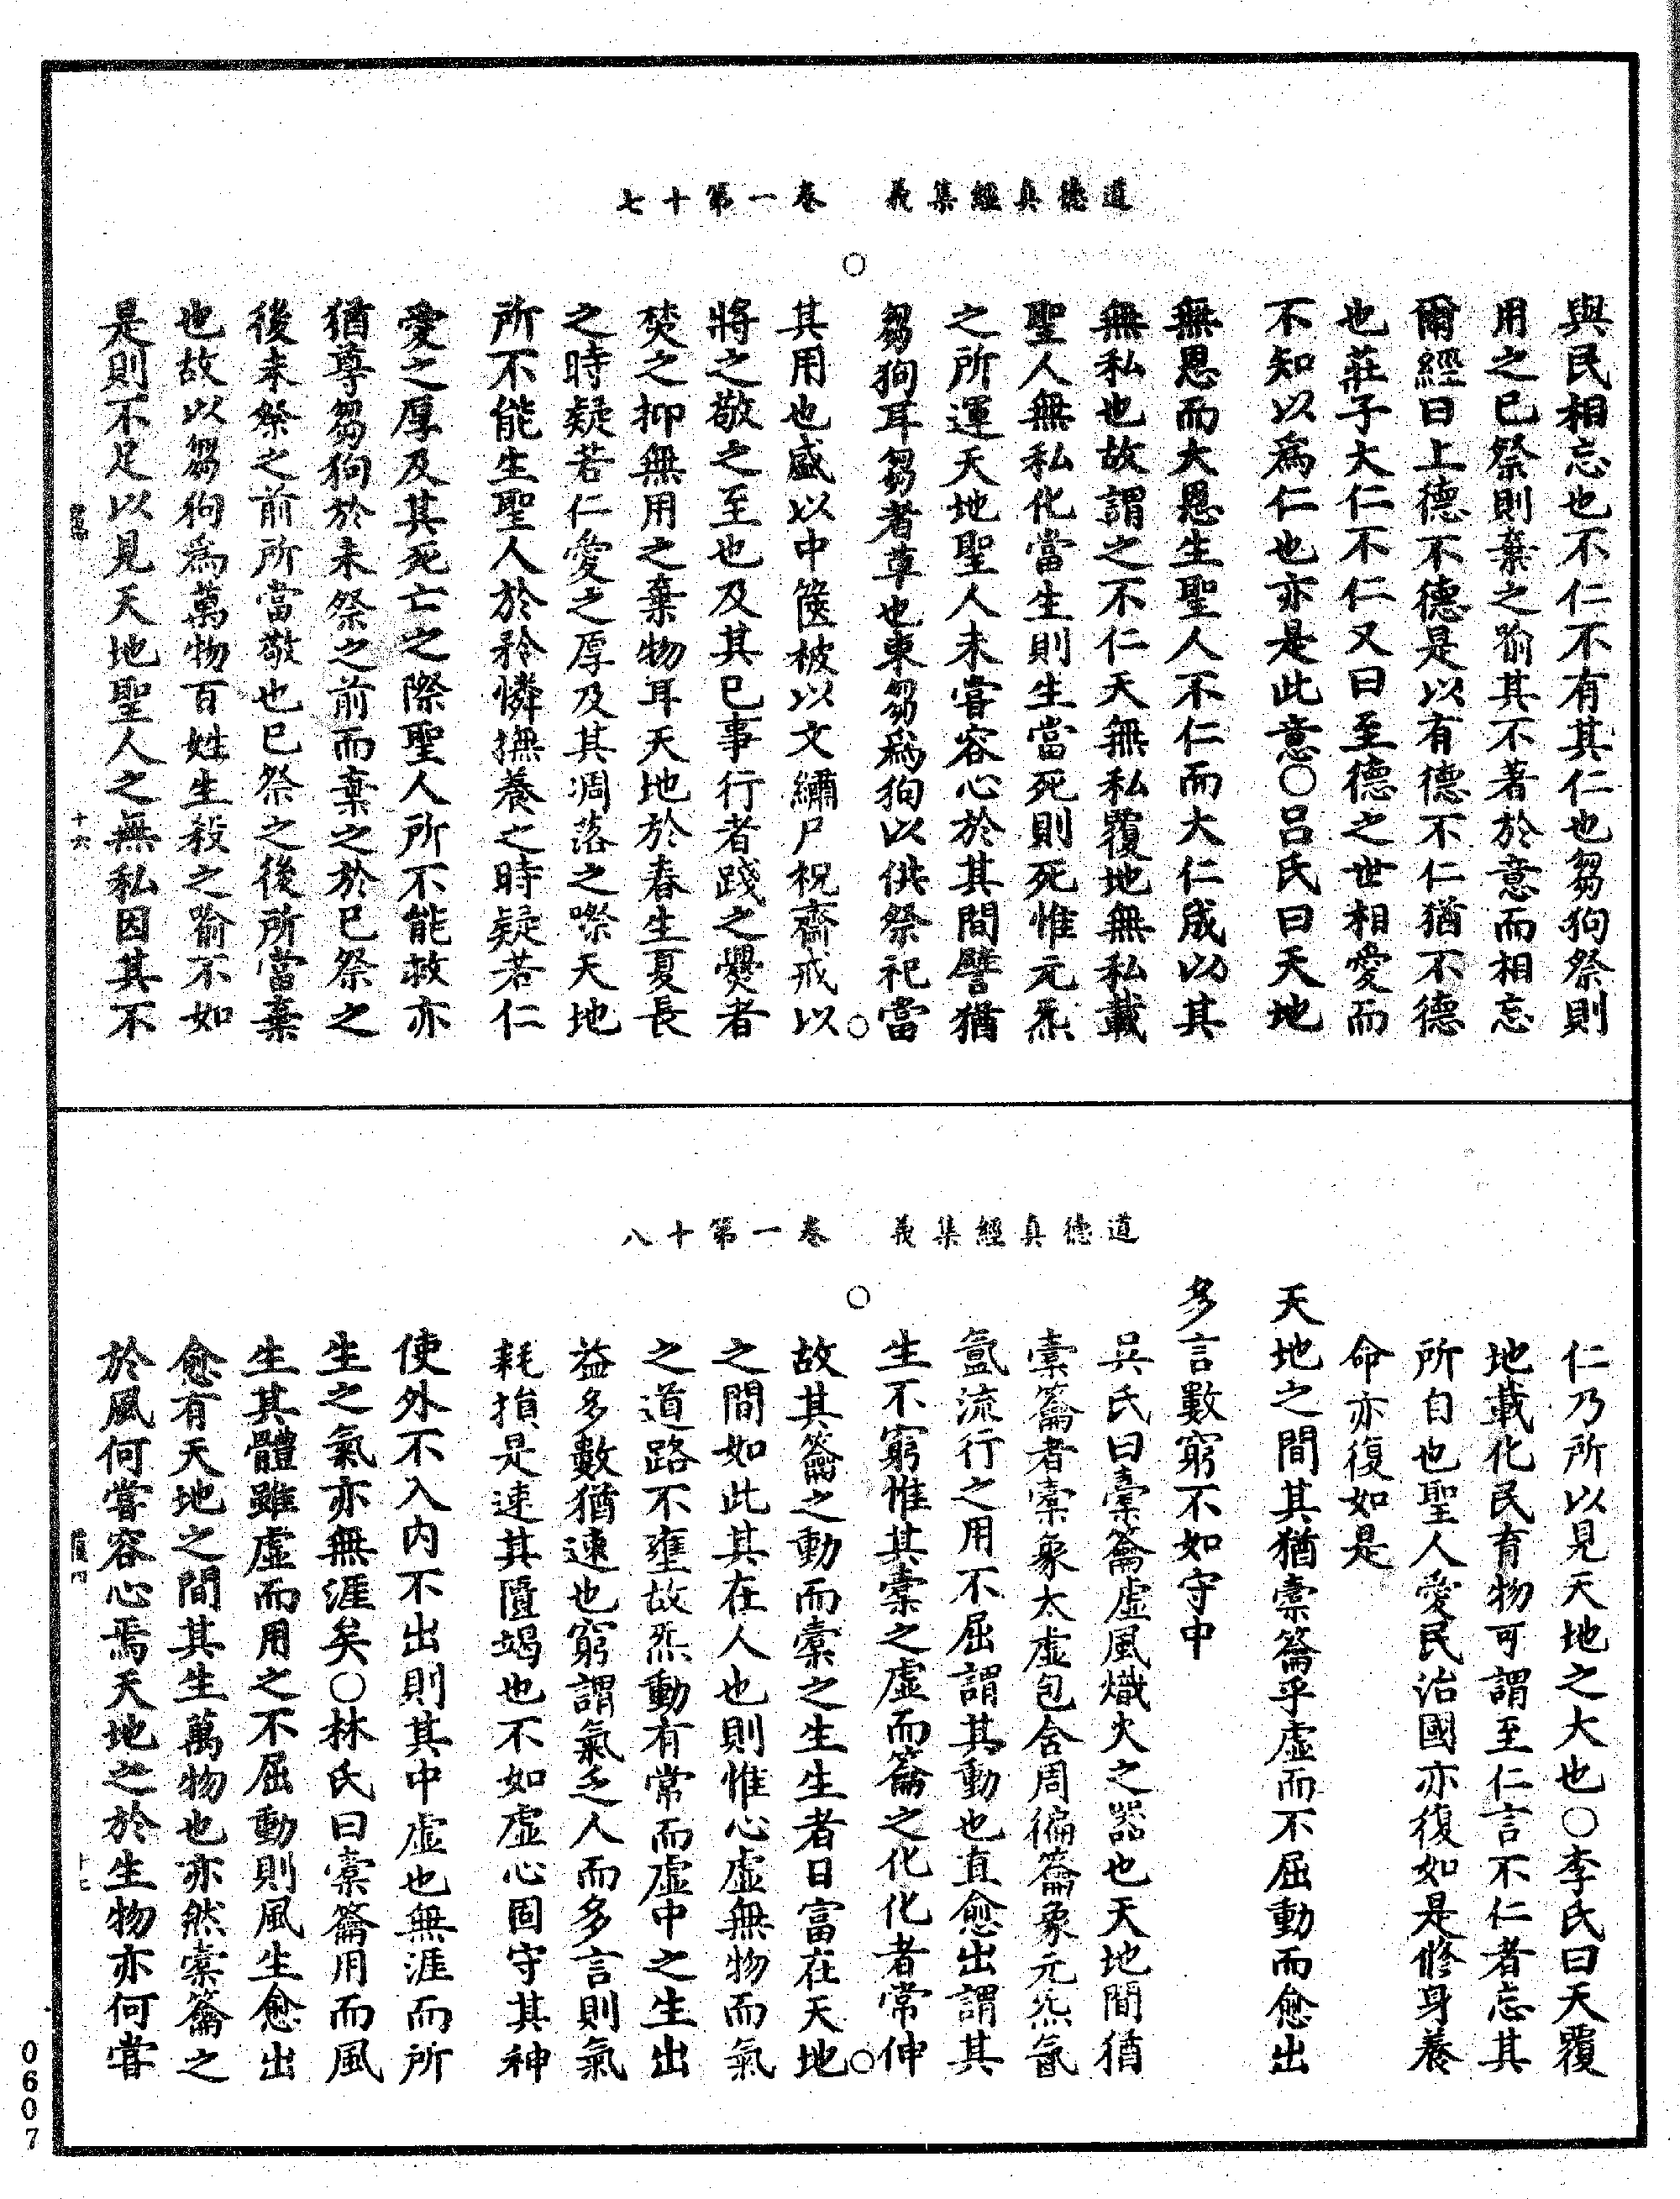 道德真經集義　卷一第十七
與民相忘也不仁不有其仁也芻狗祭則
用之已祭則棄之喻其不著於意而相忘
爾經曰上德不德是以有德不仁猶不德
也莊子大仁不仁又曰至德之世相愛而
不知以為仁也亦是此意○呂氏曰天地
無恩而大恩生聖人不仁而大仁成以其
無私也故謂之不仁天無私覆地無私載
聖人無私化當生則生當死則死惟元炁
之所運天地聖人未嘗容心於其間譬猶
芻狗耳芻者草也束芻為狗以供祭祀當
其用也盛以中篋被以文繡尸祝齋戒以
將之敬之至也及其已事行者踐之爨者
焚之抑無用之棄物耳天地於春生夏長
之時疑若仁愛之厚及其凋落之際天地
所不能生聖人於矜憐撫養之時疑若仁
愛之厚及其死亡之際聖人所不能救亦
猶尊芻狗於未祭之前而棄之於已祭之
後未祭之前所當敬也已祭之後所當棄
也故以芻狗為萬物百姓生殺之喻不如
是則不足以見天地聖人之無私因其不
十六
道德真經集義　卷一第十八
仁乃所以見天地之大也○李氏曰天覆
地載化民育物可謂至仁言不仁者忘其
所自也聖人愛民治國亦復如是脩身養
命亦復如是
天地之間其猶橐籥乎虛而不屈動而愈出
多言數窮不如守中
吳氏曰橐籥虛風熾火之器也天地間猶
橐籥者橐象太虛包含周徧籥象元炁氤
氳流行之用不屈謂其動也直愈出謂其
生不窮惟其橐之虛而籥之化化者常伸
故其籥之動而橐之生生者日富在天地
之間如此其在人也則惟心虛無物而氣
之道路不壅故炁動有常而虛中之生出
益多數猶速也窮謂氣乏人而多言則氣
耗損是速其匱竭也不如虛心固守其神
使外不入內不出則其中虛也無涯而所
生之氣亦無涯矣○林氏曰橐籥用而風
生其體雖虛而用之不屈動則風生愈出
愈有天地之間其生萬物也亦然橐籥之
於風何嘗容心焉天地之於生物亦何嘗
十七
0607